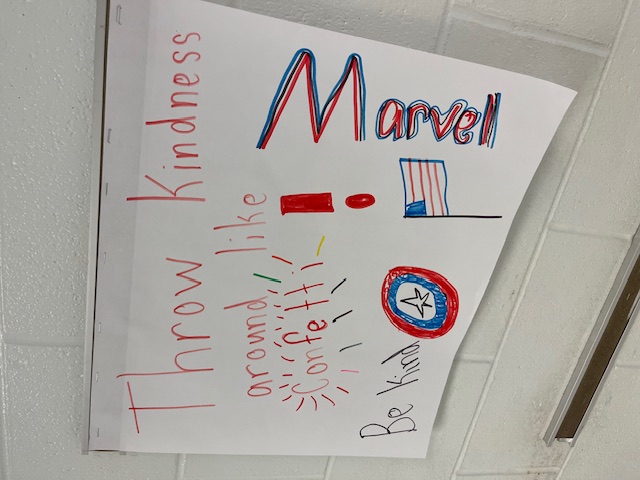 Throw Kindness
around like
Confetti!
Be Kind
Marvel